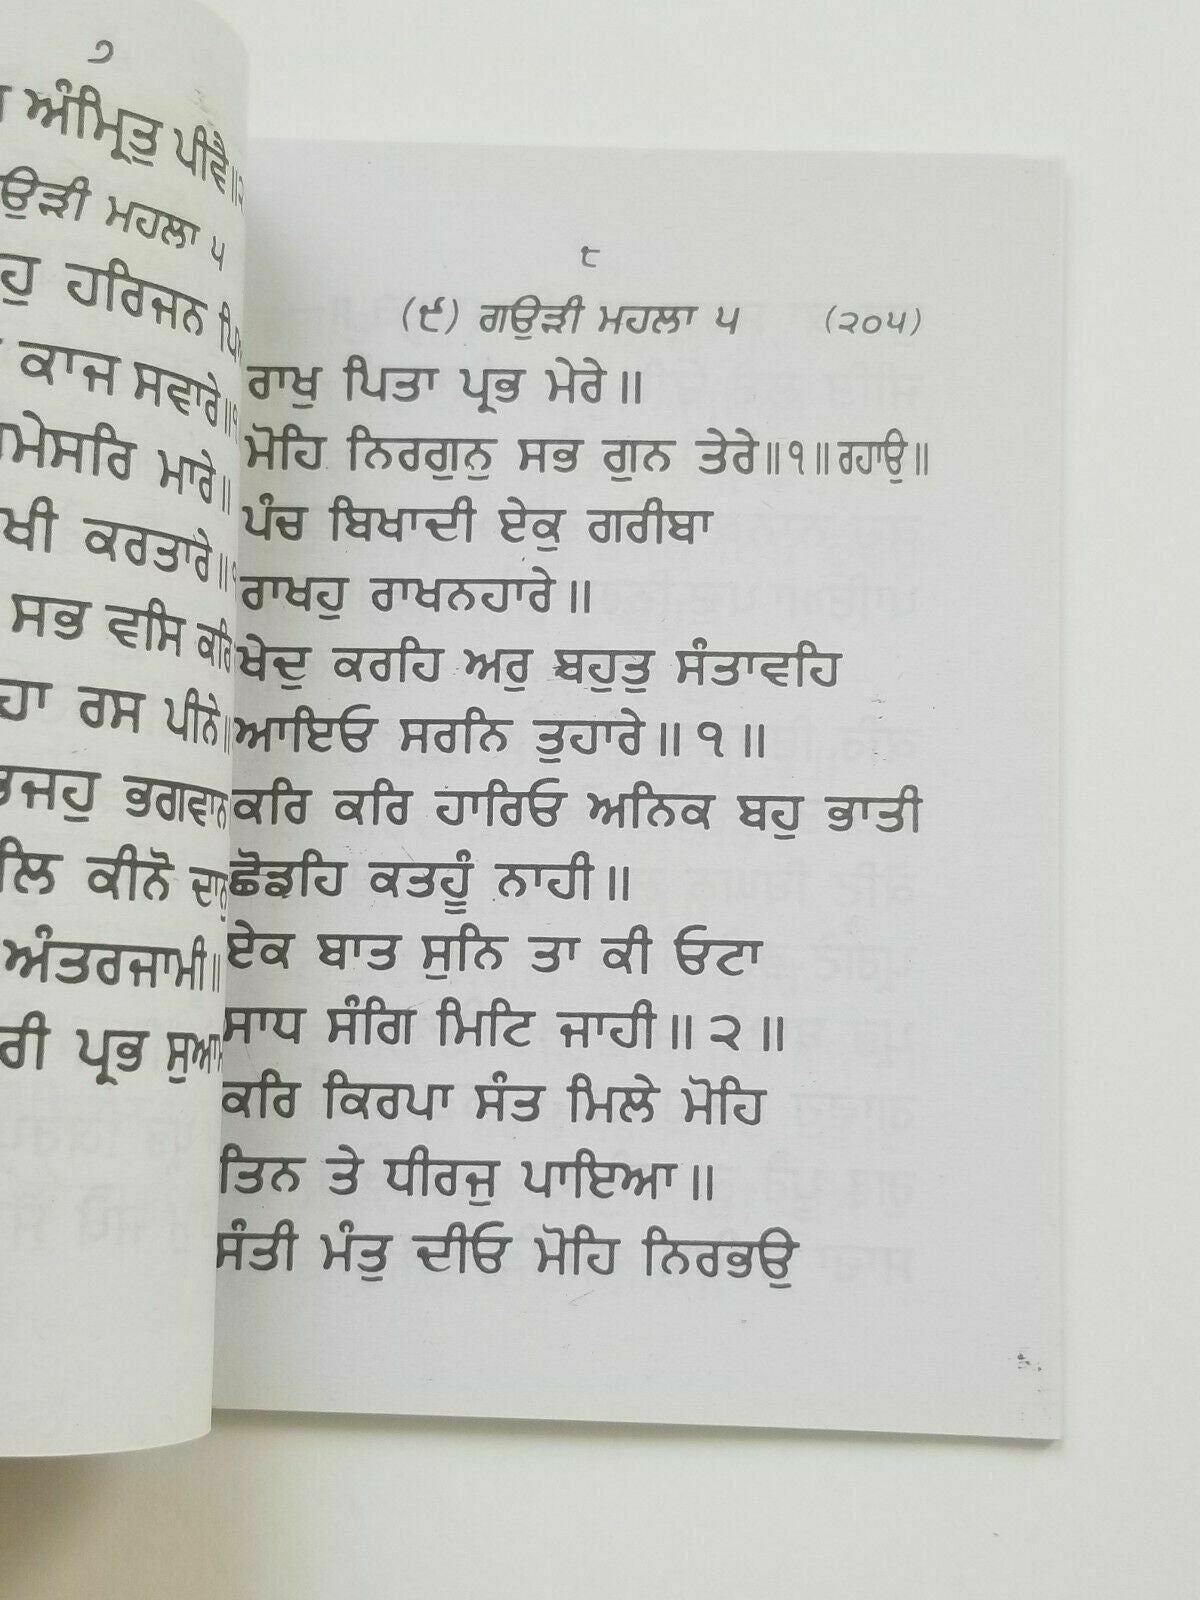 ੭
ਅੰਮ੍ਰਿਤੁ ਪੀਵੈ॥੨
ਗਉੜੀ ਮਹਲਾ ੫
ਹਰਿਜਨ
ਕਾਜ ਸਵਾਰੇ॥੧
ਮਾਰੇ॥
ਕਰਤਾਰੇ॥੧
ਸਭ ਵਸਿ ਕਰਿ
ਰਸ ਪੀਨੇ॥
ਭਜਹੁ ਭਗਵਾਨ
ਕੀਨੋ ਦਾਨੁ
ਅੰਤਰਜਾਮੀ॥
ਪ੍ਰਭ
੮
(੯) ਗਉੜੀ ਮਹਲਾ ੫ (੨੦੫)
ਰਾਖੁ ਪਿਤਾ ਪ੍ਰਭ ਮੇਰੇ॥
ਮੋਹਿ ਨਿਰਗੁਨੁ ਸਭ ਗੁਨ ਤੇਰੇ॥੧॥ਰਹਾਉ॥
ਪੰਚ ਬਿਖਾਦੀ ਏਕੁ ਗਰੀਬਾ
ਰਾਖਹੁ ਰਾਖਨਹਾਰੇ॥
ਖੇਦੁ ਕਰਹਿ ਅਰੁ ਬਹੁਤੁ ਸੰਤਾਵਹਿ
ਆਇਓ ਸਰਨਿ ਤੁਹਾਰੇ॥੧॥
ਕਰਿ ਕਰਿ ਹਾਰਿਓ ਅਨਿਕ ਬਹੁ ਭਾਤੀ
ਛੋਡਹਿ ਕਤਹੂੰ ਨਾਹੀ॥
ਏਕ ਬਾਤ ਸੁਨਿ ਤਾ ਕੀ ਓਟਾ
ਸਾਧ ਸੰਗਿ ਮਿਟਿ ਜਾਹੀ॥੨॥
ਕਰਿ ਕਿਰਪਾ ਸੰਤ ਮਿਲੇ ਮੋਹਿ
ਤਿਨ ਤੇ ਧੀਰਜੁ ਪਾਇਆ॥
ਸੰਤੀ ਮੰਤੁ ਦੀਓ ਮੋਹਿ ਨਿਰਭਉ